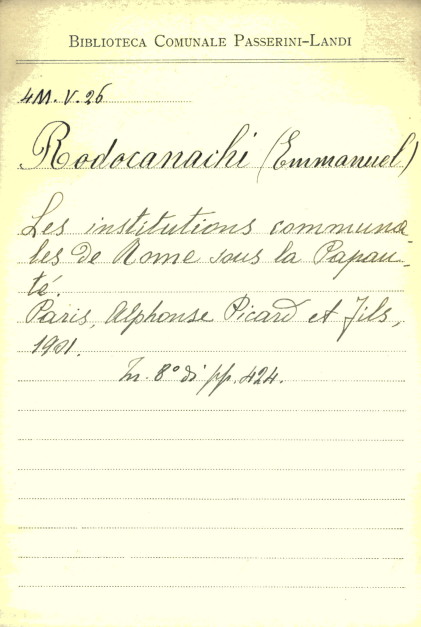 BIBLIOTECA COMUNALE PASSERINI-LANDI
4M.V.26
Rodocanachi (Emmanuel)
Les institutions communa
les de Rome sous la Papau-
té.
Paris, Alphonse Picard et Fils,
1901.
In. 8° di pp. 424.